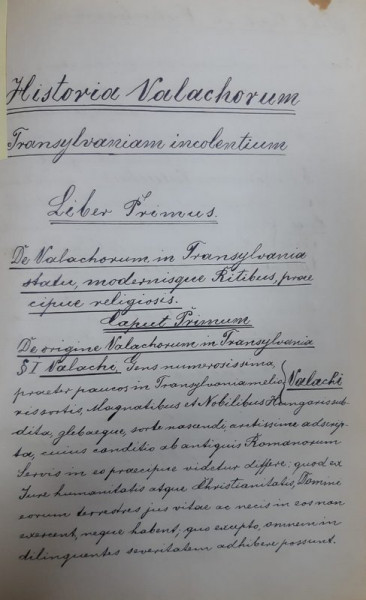 Historia Valachorum
Transylvaniam incolentium
Liber Primus.
De Valachorum in Transylvania
statu, modernisque Ritibus, prae
cipue religiosis.
Caput Primum
De origine Valachorum in Transylvania
§ I Valachi. Gens numerosissima,
praeter paucos in Transylvania melio
Valachi
ris sortis, Magnatibus et Nobilibus Hungaris sub
dita, glebaeque, sorte nascende arctissime adscrip
ta, cuius conditio ab antiquis Romanorum
Servis in eo praecipue videtur differe: quod ex
Iure humanitatis atque Christianitatis, Domini
eorum terrestres jus vitae ac necis in eos non
exercent, neque habent; quo excepto, omnem in
delinquentes severitatem adhibere possunt.